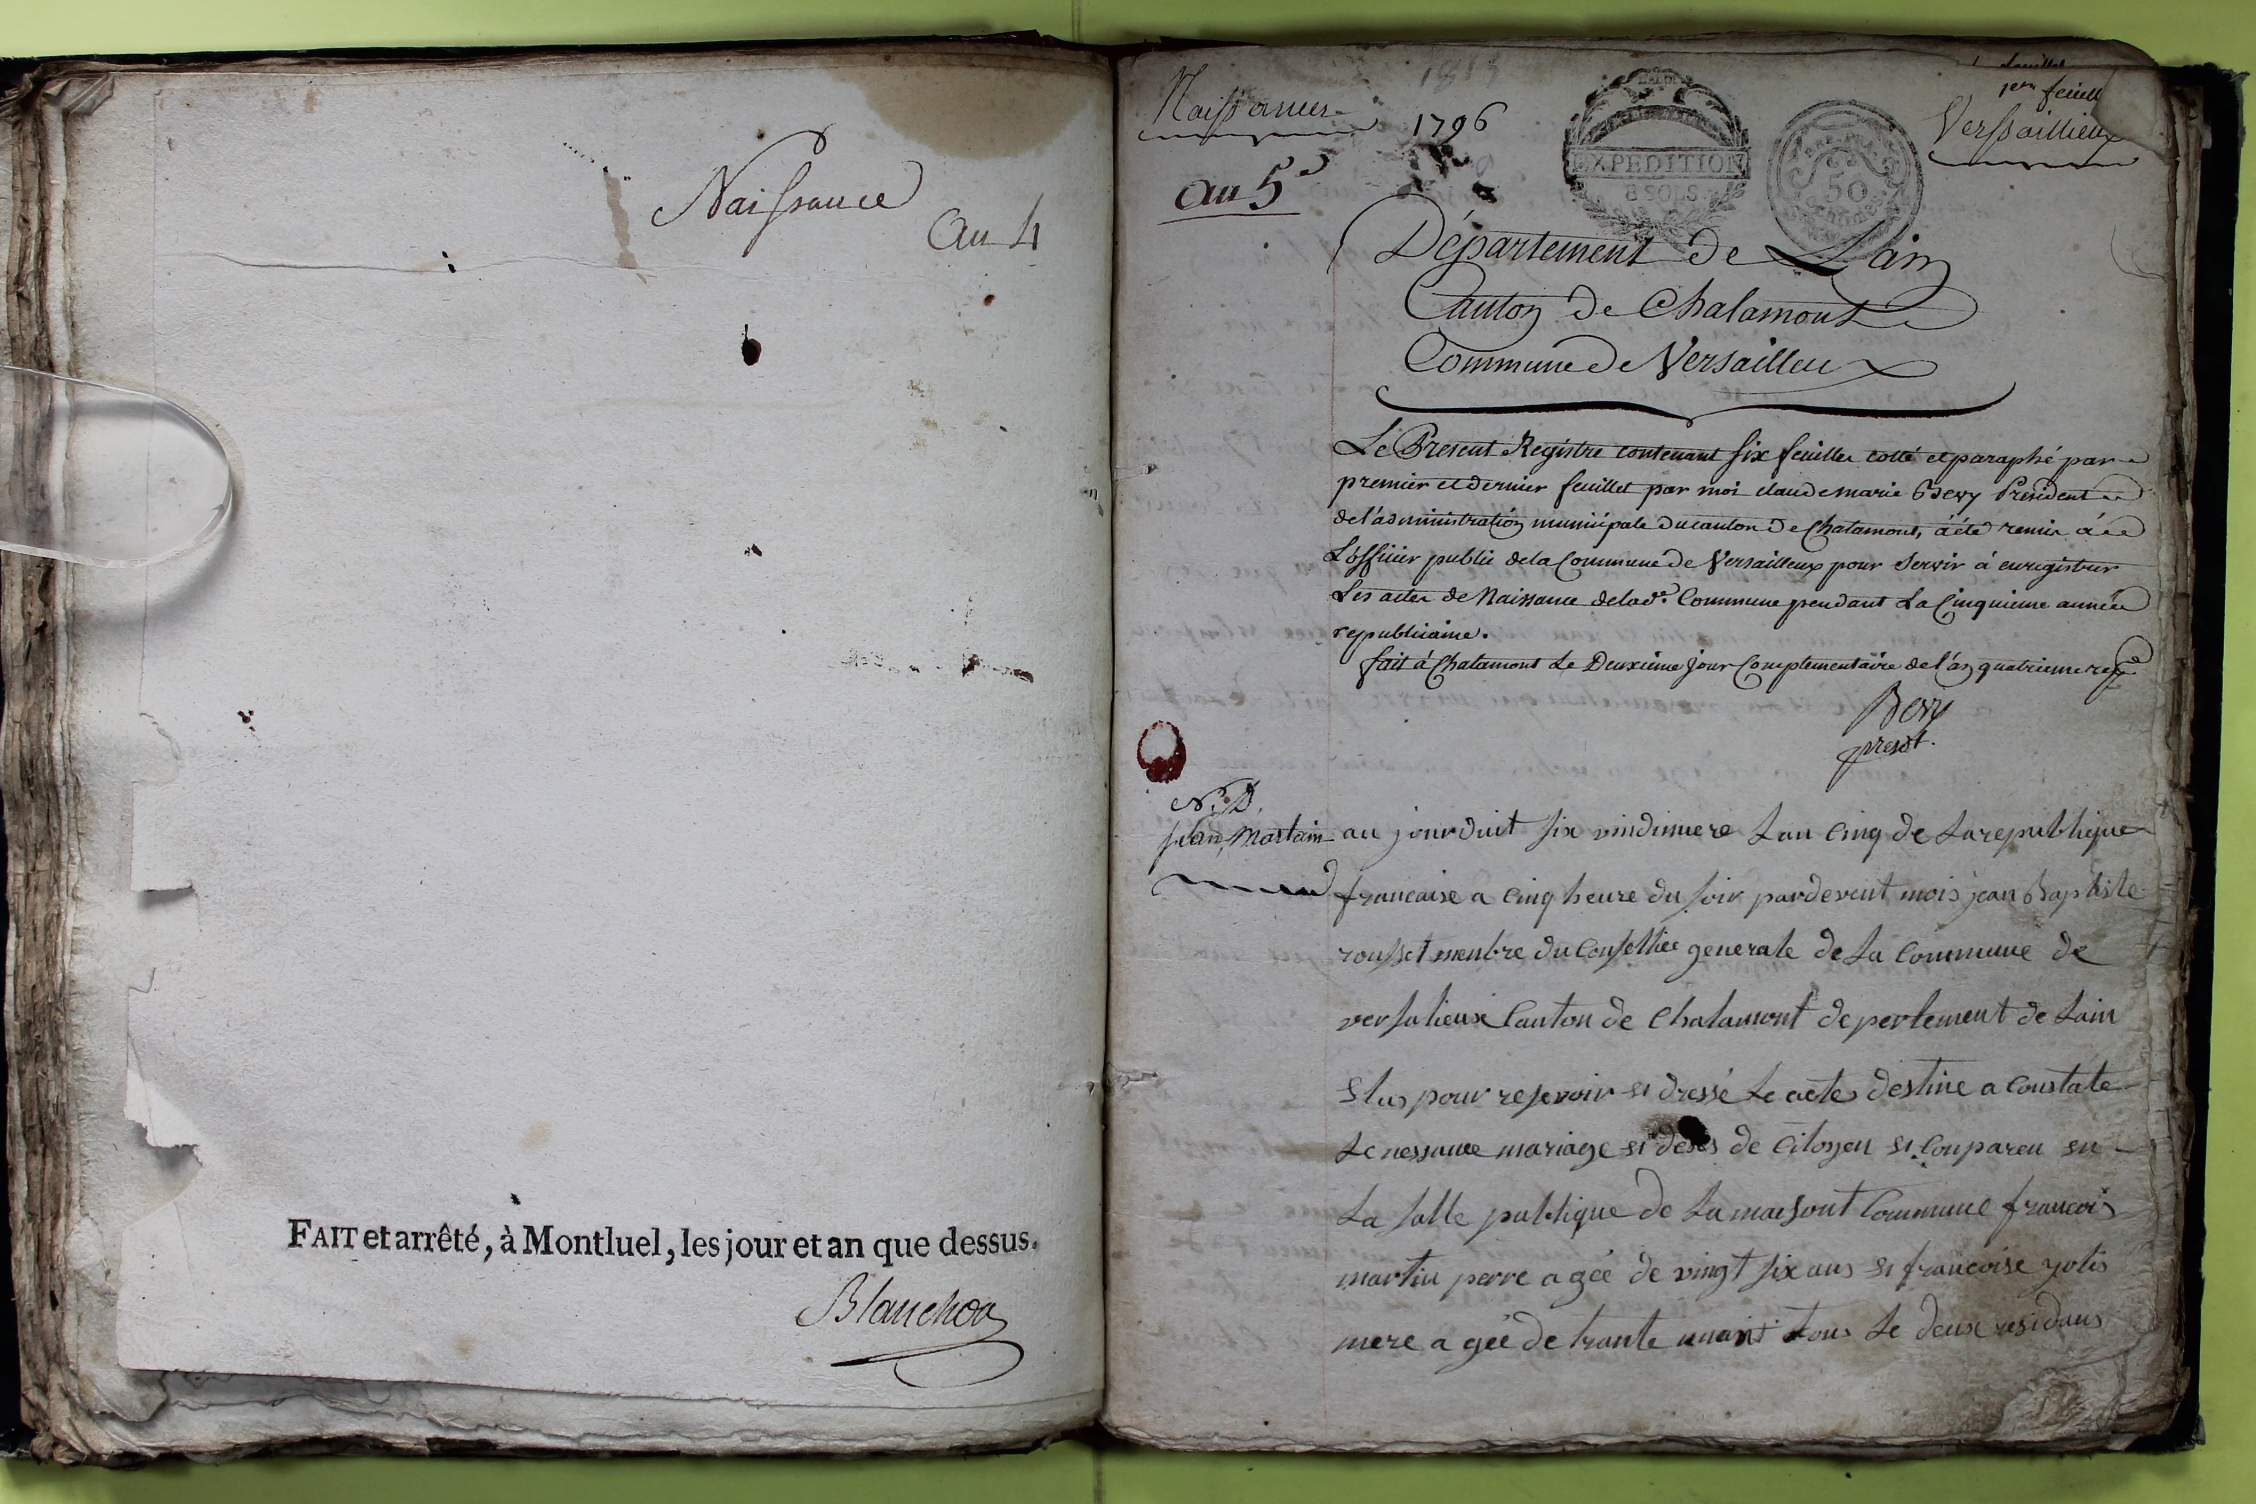 Naissance
an 4
FAIT et arrêté, à Montluel, les jour et an que dessus.
Blanchon
Naissances
1796
an 5e
EXPEDITION
8 SOLS
50
1er feuill
Versaillieux
Département de Lain
Canton de Chalamont
Commune de Versailleux
Le Present Registre contenant six feuilles cotté et paraphé par
premier et dernier feuillet par moi claude marie Bevy President
de l'administration municipale du canton de Chalamont, à été remis à
L'officier public de la Commune de Versailleux pour servir à enregistrer
Les actes de Naissance de lad.e Commune pendant La Cinquieme année
republicaine.
fait à Chalamont Le Deuxieme jour Complementaire de l'an quatrieme rep
Bevy
presdt.
jean Martain
au jourduit six vindimere Lan Cinq de La republique
francaise a Cinq heure du soir pardevent mois jean Baptiste
rousset menbre du Conselliee generale de La Commune de
versalieux Canton de Chalamont depertement de Lain
Elus pour resevoir et dressé Le actes destine a Constate
Le nessance mariage et deses de Citoyen et Conpareu en
La salle publique de La maesont Commune francois
martin perre agée de vingt six ans et francoise
mere agée de trante tous Le deux residans